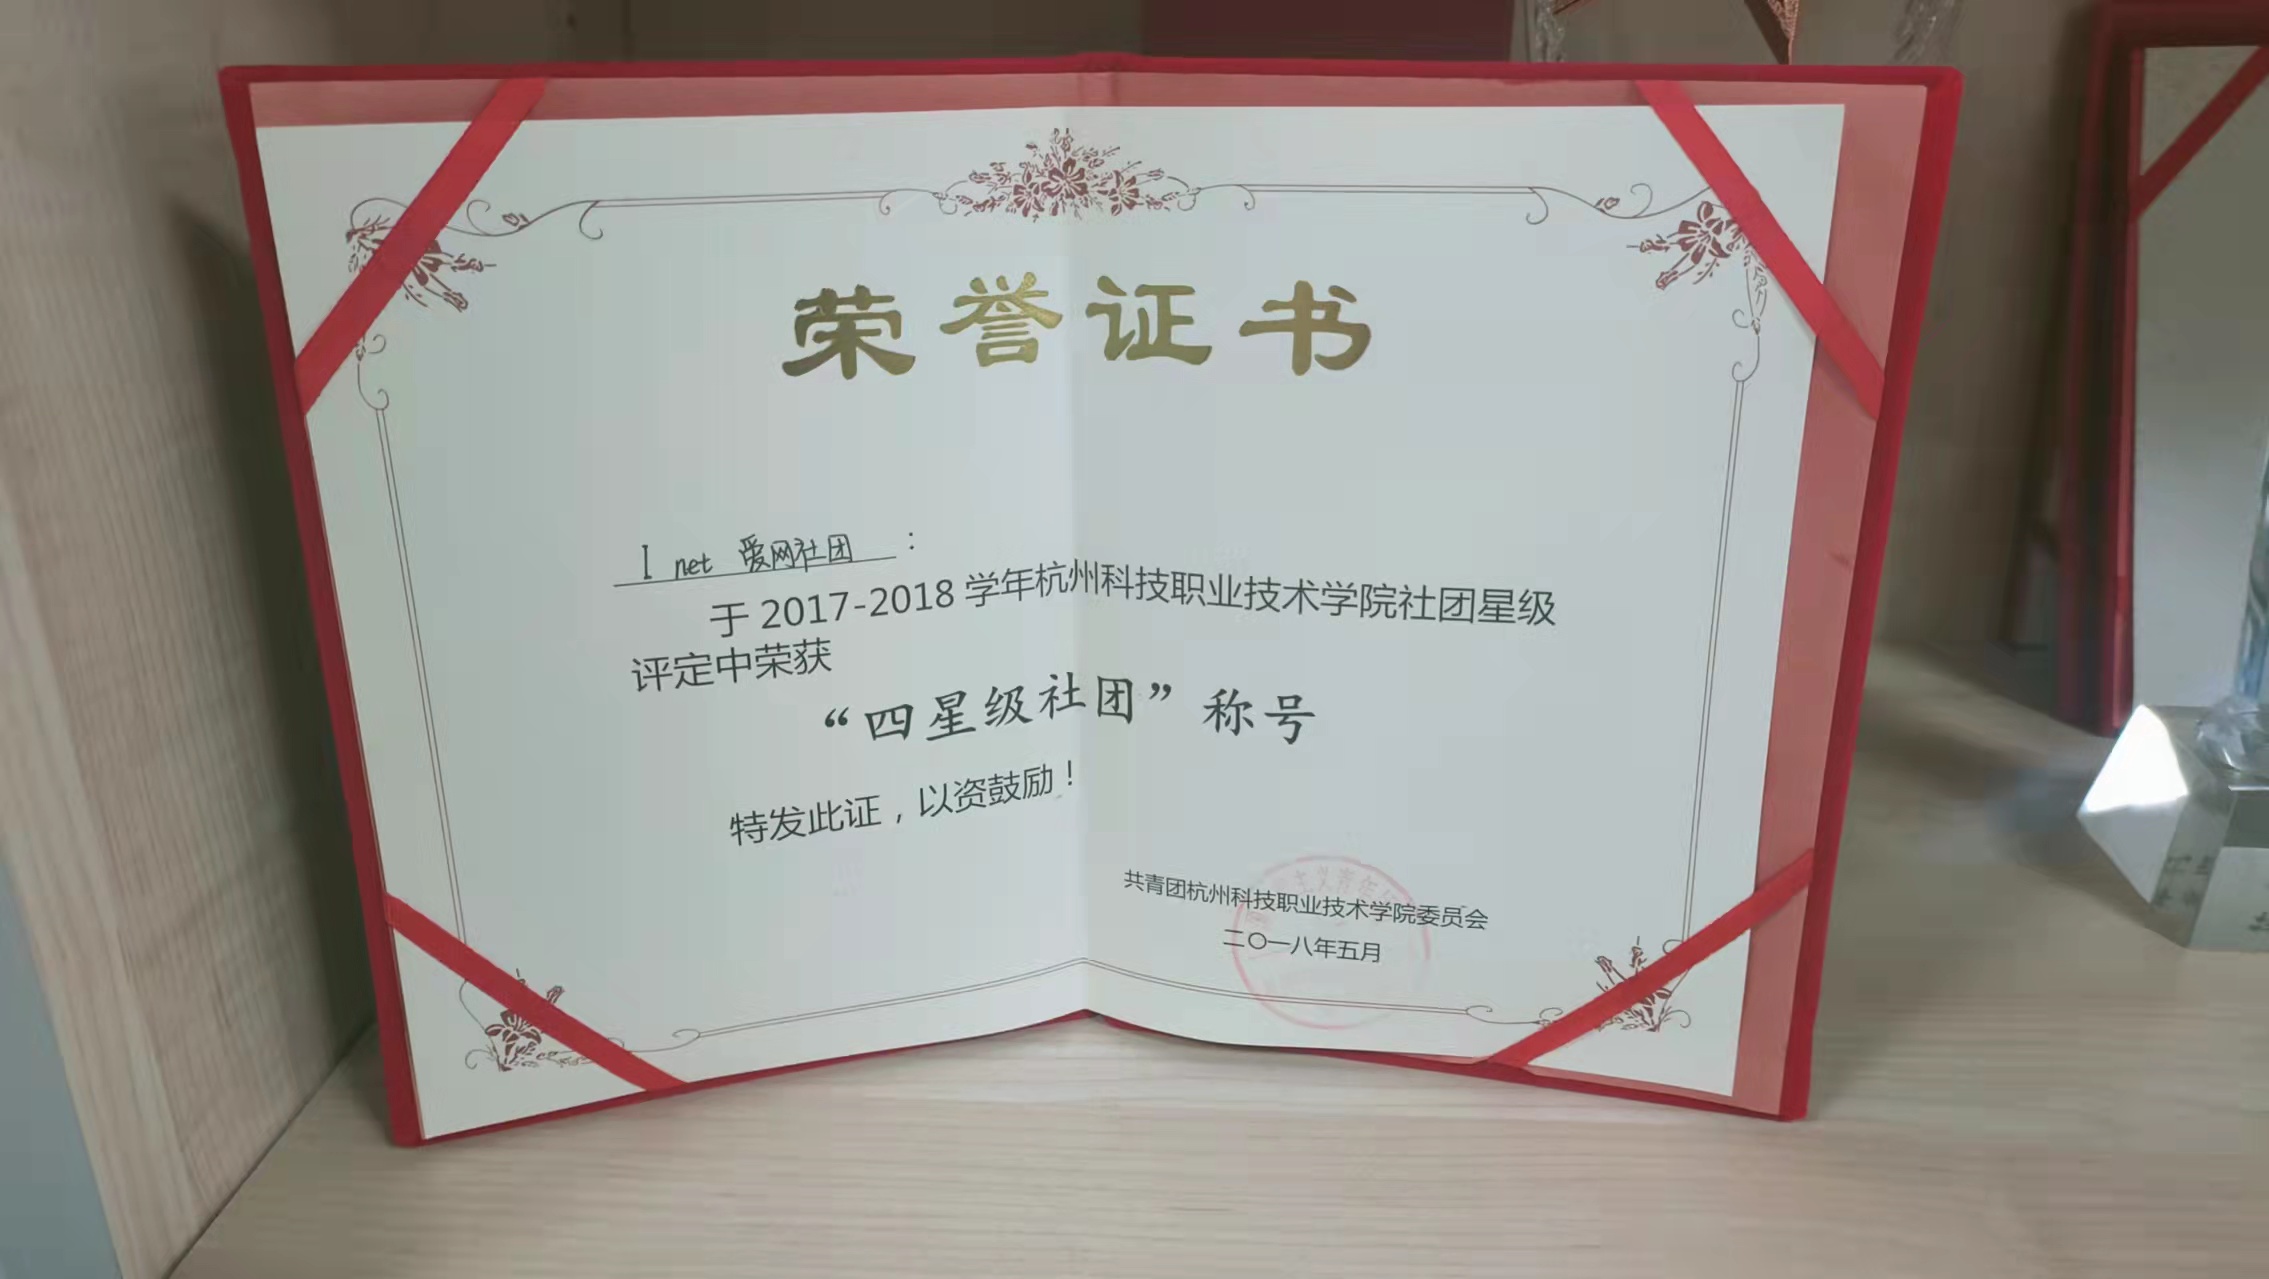 荣誉证书
I net 爱网社团：
于 2017-2018 学年杭州科技职业技术学院社团星级
评定中荣获
“四星级社团”称号
特发此证，以资鼓励！
主义青年
共青团杭州科技职业技术学院委员会
二〇一八年五月